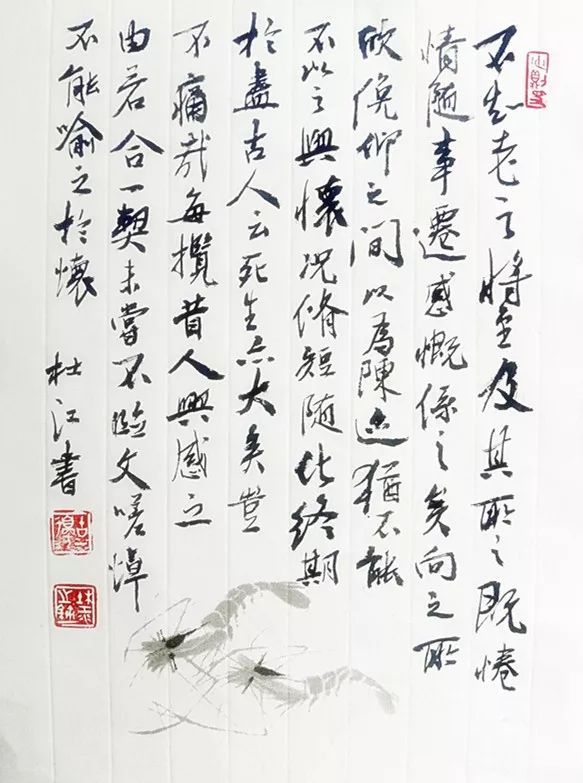 不知老之將至及其所之既惓
情隨事遷感慨係之矣向之所
欣俛仰之間以為陳迹猶不能
不以之興懷況脩短隨化終期
於盡古人云死生亦大矣豈
不痛哉每攬昔人興感之
由若合一契未嘗不臨文嗟悼
不能喻之於懷 杜江書